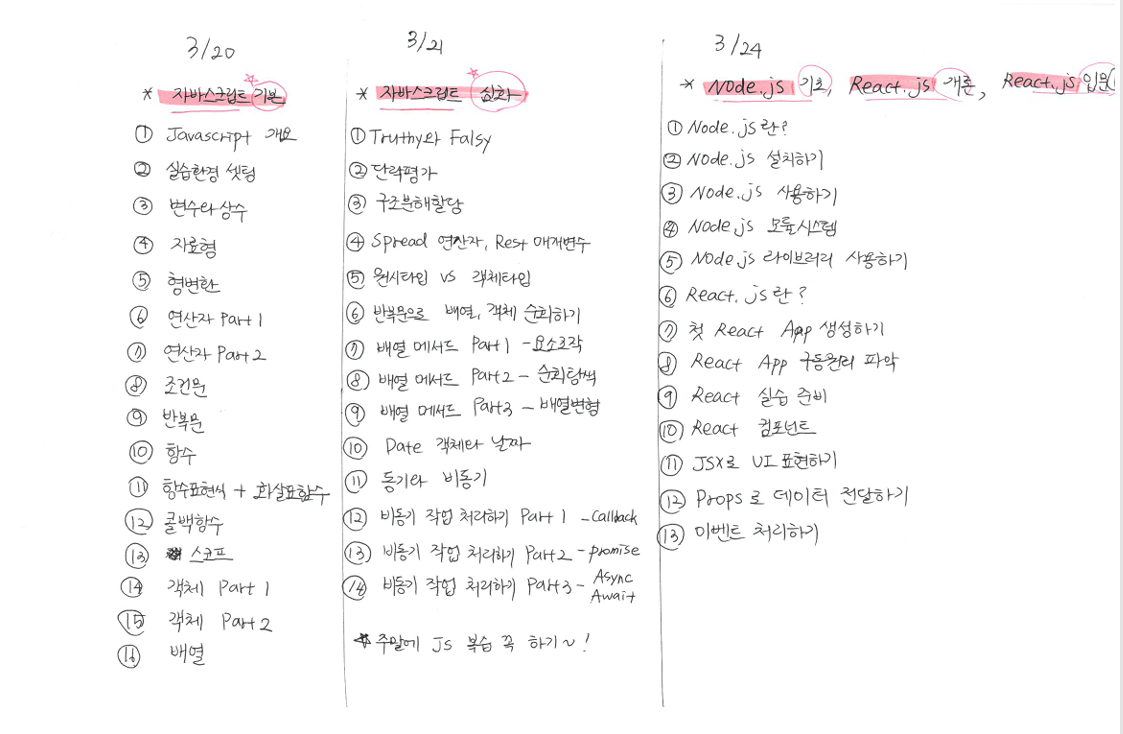 3/20
* 자바스크립트 기본
① Javascript 개요
② 실습환경 셋팅
③ 변수와 상수
④ 자료형
⑤ 형변환
⑥ 연산자 Part 1
⑦ 연산자 Part 2
⑧ 조건문
⑨ 반복문
⑩ 함수
⑪ 함수표현식 + 화살표함수
⑫ 콜백함수
⑬ 스코프
⑭ 객체 Part 1
⑮ 객체 Part 2
⑯ 배열
3/21
* 자바스크립트 심화
① Truthy와 Falsy
② 단락평가
③ 구조분해할당
④ Spread 연산자, Rest 매개변수
⑤ 원시타입 vs 객체타입
⑥ 반복문으로 배열, 객체 순회하기
⑦ 배열 메서드 Part 1 - 요소조작
⑧ 배열 메서드 Part 2 - 순회탐색
⑨ 배열 메서드 Part 3 - 배열변형
⑩ Date 객체와 날짜
⑪ 동기와 비동기
⑫ 비동기 작업 처리하기 Part 1 - Callback
⑬ 비동기 작업 처리하기 Part 2 - promise
⑭ 비동기 작업 처리하기 Part 3 - Async
Await
☆ 주말에 JS 복습 꼭 하기~!
3/24
* Node.js 기초, React.js 개론, React.js 입문
① Node.js란?
② Node.js 설치하기
③ Node.js 사용하기
④ Node.js 모듈시스템
⑤ Node.js 라이브러리 사용하기
⑥ React.js란?
⑦ 첫 React App 생성하기
⑧ React App 구동원리 파악
⑨ React 실습 준비
⑩ React 컴포넌트
⑪ JSX로 UI 표현하기
⑫ Props로 데이터 전달하기
⑬ 이벤트 처리하기